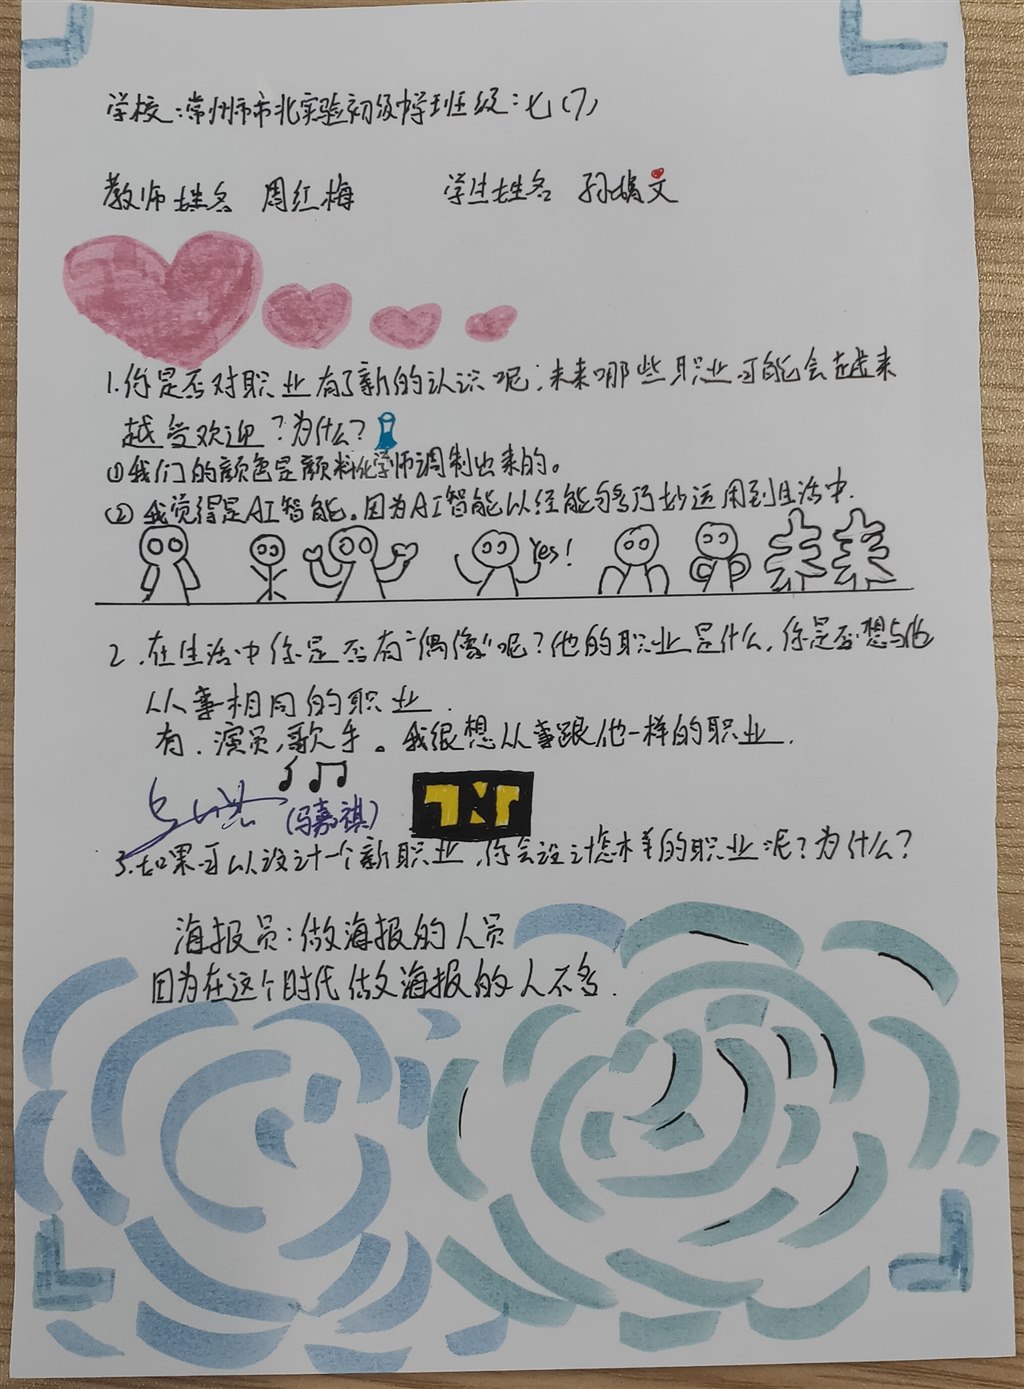 学校:常州市市北实验初级中学班级:七(7)
教师姓名 周红梅 学生姓名 孙 文
1.你是否对职业有了新的认识呢;未来哪些职业可能会越来
越受欢迎?为什么?
①我们的颜色是颜料化学师调制出来的。
②我觉得是AI智能。因为AI智能以经能够巧妙运用到生活中.
Yes!
未来
2.在生活中你是否有“偶像”呢?他的职业是什么,你是否想与他
从事相同的职业.
有.演员,歌手。我很想从事跟他一样的职业.
(马嘉祺)
3.如果可以设计一个新职业,你会设计怎样的职业呢?为什么?
海报员:做海报的人员
因为在这个时代做海报的人不多.